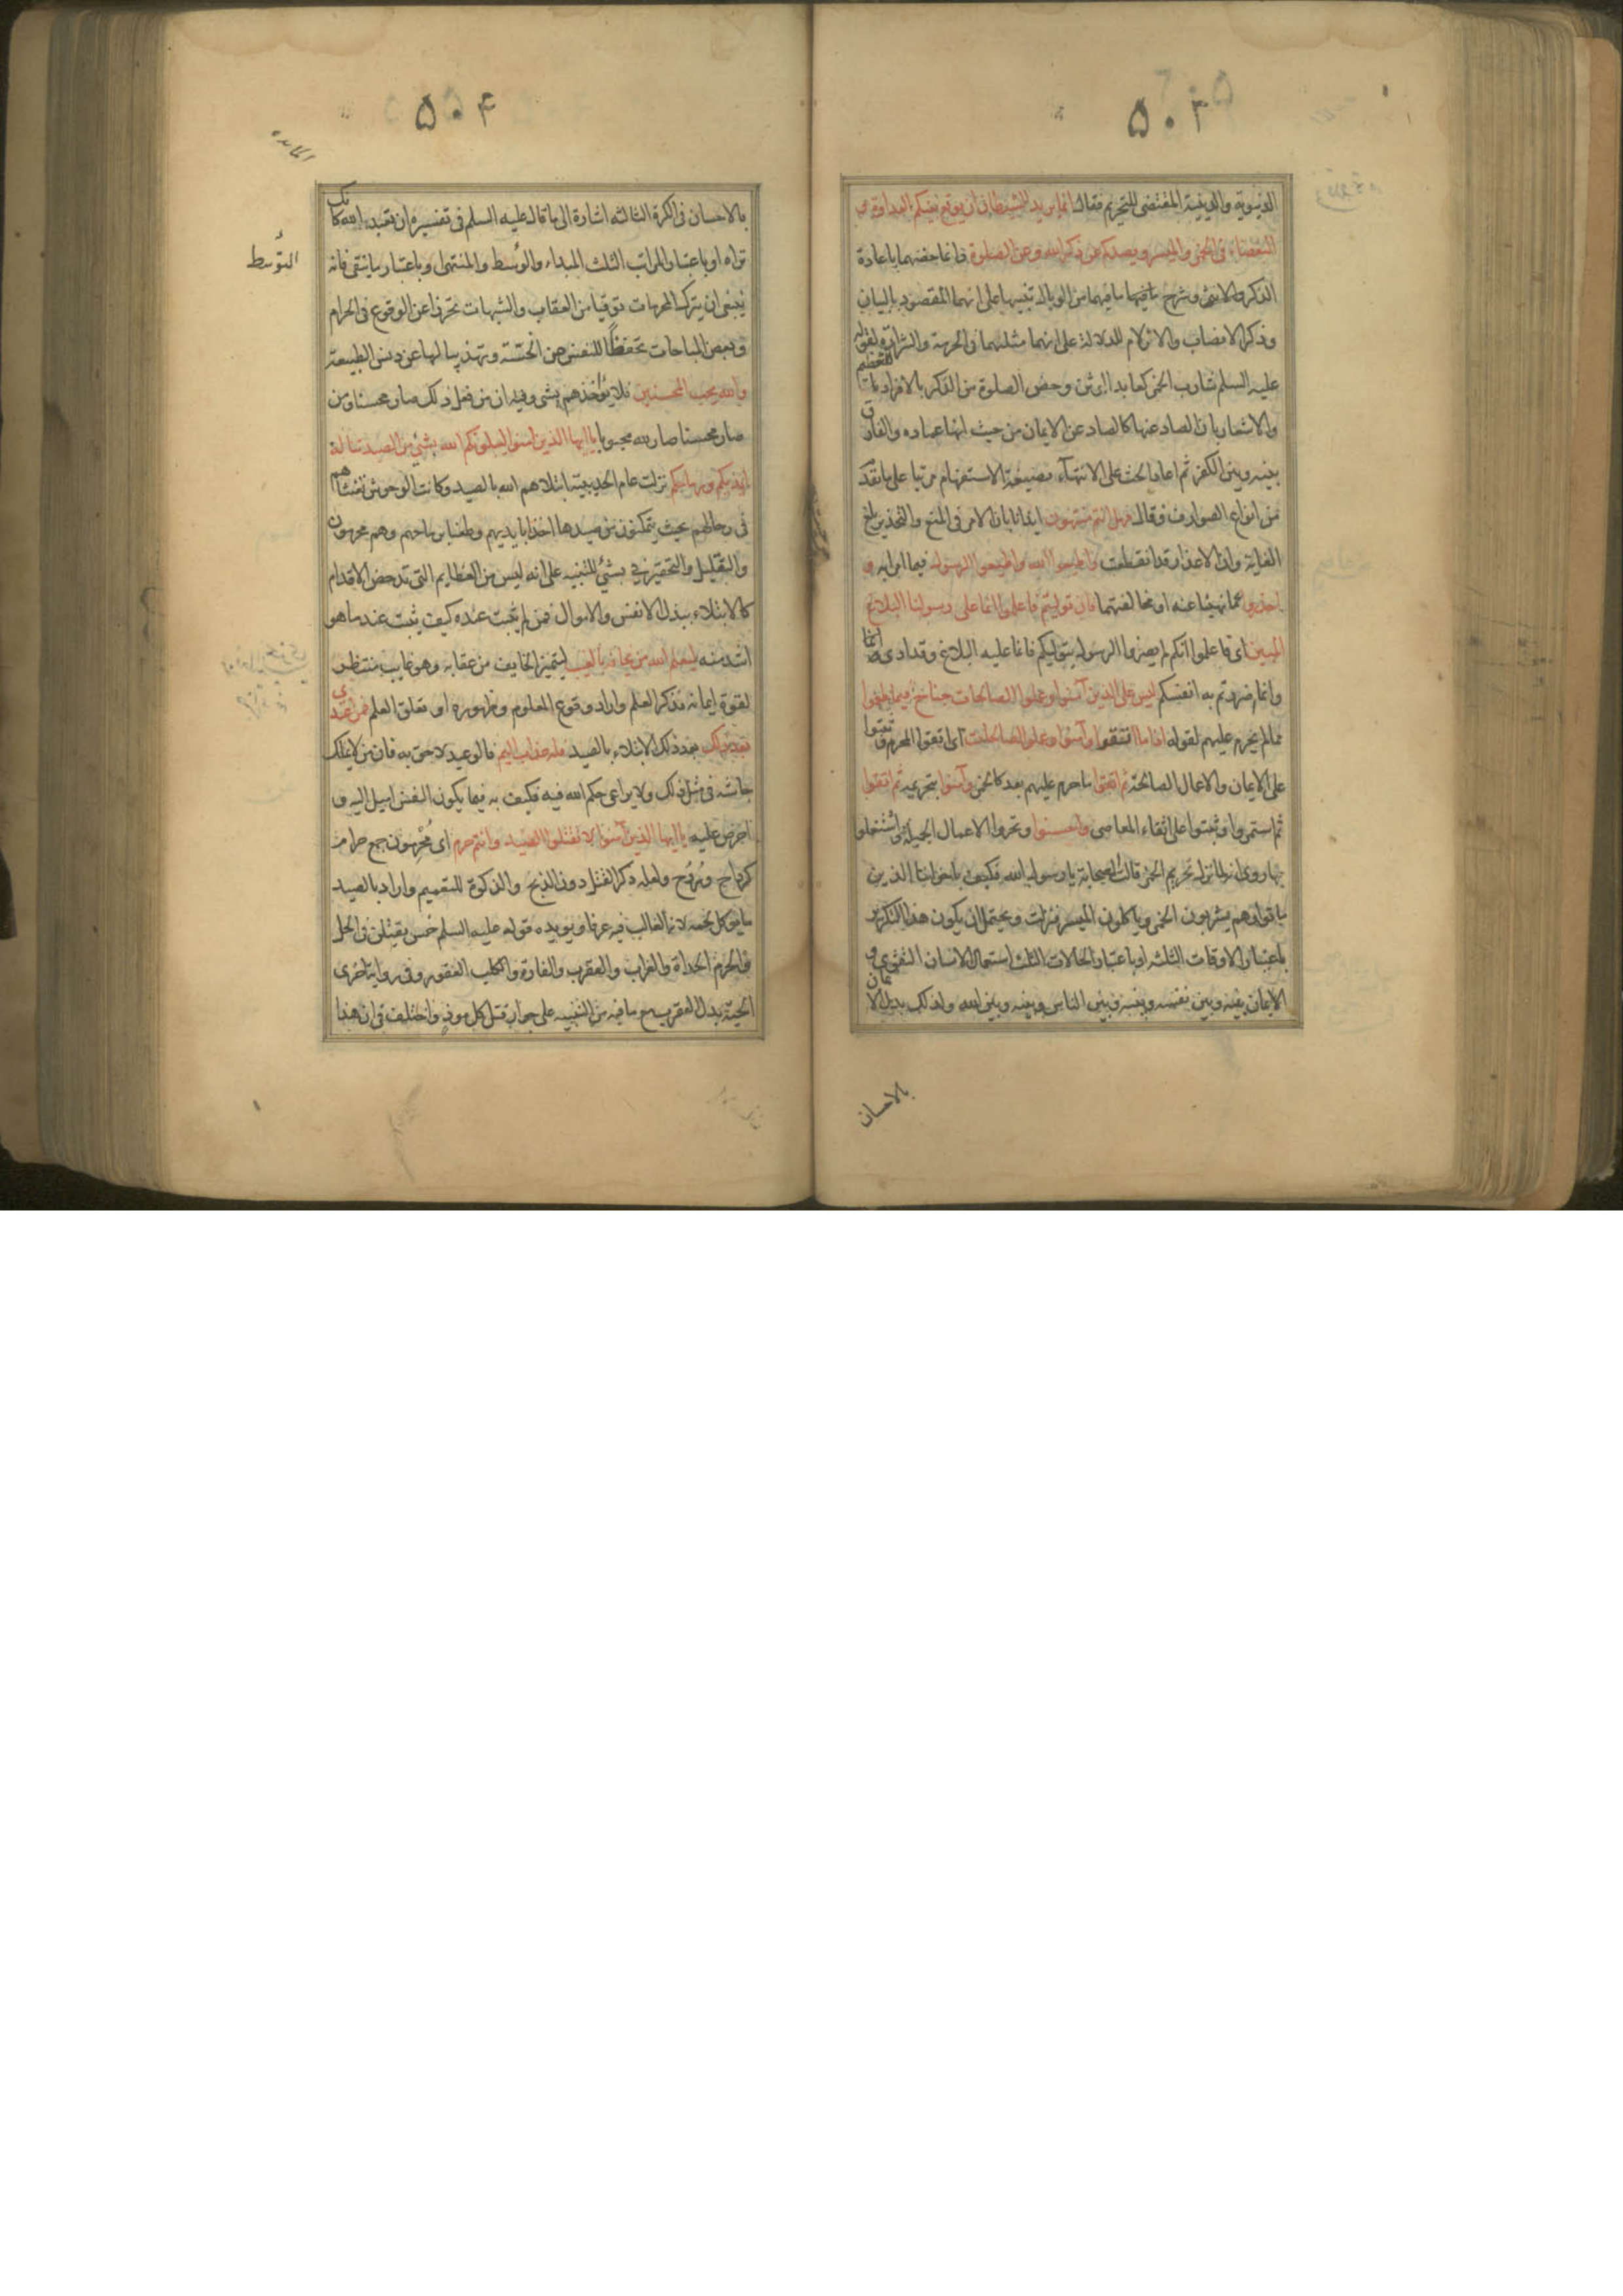 ۵۰۳
الدنيوية والدينية المقتضى للتحريم فقال انما يريد الشيطان ان يوقع بينكم العداوة و
البغضاء فى الخمر والميسر ويصدكم عن ذكر الله وعن الصلوة وانما خصهما باعادة
الذكر والاثم وشرح ما فيها ما فيهما من الوبال تنبيها على انهما المقصود بالبيان
وذكر الانصاب والازلام للدلالة على انهما مثلهما فى الحرمة والشرارة لقوله
عليه السلم شارب الخمر كعابد الوثن وخص الصلوة من الذكر بالافراد للتعظيم
والاشعار بان الصاد عنها كالصاد عن الايمان من حيث انها عماده والفارق
بينه وبين الكفر ثم اعاد الحث على الانتهاء بصيغة الاستفهام مرتبا على ما تقدم
من انواع الصوارف فقال فهل انتم منتهون ايذانا بان الامر فى المنع والتحذير بلغ
الغاية وان الاعذار قد انقطعت واطيعوا الله واطيعوا الرسول فيما امرا به و
احذروا عما نهيا عنه او مخالفتهما فان توليتم فاعلموا انما على رسولنا البلاغ
المبين اى فاعلموا انكم لم تضروا الرسول بتوليكم فانما عليه البلاغ وقد ادى
وانما ضررتم به انفسكم ليس على الذين آمنوا وعملوا الصالحات جناح فيما طعموا
مما لم يحرم عليهم لقوله اذا ما اتقوا وآمنوا وعملوا الصالحات اى اتقوا المحرم وثبتوا
على الايمان والاعمال الصالحة ثم اتقوا ما حرم عليهم بعد كالخمر وآمنوا بتحريمه ثم اتقوا
ثم استمروا وثبتوا على اتقاء المعاصى واحسنوا وتحروا الاعمال الجميلة واشتغلوا
بها روى انه لما نزل تحريم الخمر قالت الصحابة يا رسول الله فكيف باخواننا الذين
ماتوا وهم يشربون الخمر وياكلون الميسر فنزلت ويحتمل ان يكون هذا التكرير
باعتبار الاوقات الثلثه او باعتبار الحالات الثلث استعمال الانسان التقوى و
الايمان بينه وبين نفسه وبينه وبين الناس وبينه وبين الله ولذلك بدل الايمان
بالاحسان
۵۰۴
المائدة
بالاحسان فى الكرة الثالثه اشارة الى ما قال عليه السلم فى تفسيره ان تعبد الله كانك
تراه او باعتبار المراتب الثلث المبداء والوسط والمنتهى او باعتبار ما يتقى فانه
التوسط
ينبغى ان يترك المحرمات توقيا من العقاب والشبهات تحرزا عن الوقوع فى الحرام
وبعض المباحات تحفظا للنفس عن الخسة وتهذيبا لها عن دنس الطبيعة
والله يحب المحسنين فلا يؤاخذهم بشى وفيه ان من فعل ذلك صار محسنا ومن
صار محسنا صار لله محبوبا يا ايها الذين آمنوا ليبلونكم الله بشئ من الصيد تناله
ايديكم ورماحكم نزلت عام الحديبية ابتلاهم الله بالصيد وكانت الوحوش تغشاهم
فى رحالهم بحيث يتمكنون من صيدها اخذا بايديهم وطعنا برماحهم وهم محرمون
والتقليل والتحقير فى بشئ للتنبيه على انه ليس من العظايم التى تدحض الاقدام
كالابتلاء ببذل الانفس والاموال فمن لم يثبت عنده كيف يثبت عند ما هو
اشد منه ليعلم الله من يخافه بالغيب ليتميز الخايف من عقابه وهو غايب منتظر
لقوة ايمانه فذكر العلم واراد وقوع المعلوم وظهوره او تعلق العلم فمن اعتدى
بعد ذلك بعد ذلك الابتلاء بالصيد فله عذاب اليم فالوعيد لاحق به فان من لا يملك
جاشه فى مثل ذلك ولا يراعى حكم الله فيه فكيف به فيما يكون النفس اميل اليه و
احرص عليه يا ايها الذين آمنوا لا تقتلوا الصيد وانتم حرم اى محرمون جمع حرام
كرداح وردح ولعله ذكر القتل دون الذبح والذكوة للتعميم واراد بالصيد
ما يوكل لحمه لانه الغالب فيه عرفا ويويده قوله عليه السلم خمس يقتلن فى الحل
والحرم الحداة والغراب والعقرب والفارة والكلب العقور وفى رواية اخرى
الحية بدل العقرب مع ما فيه من التنبيه على جواز قتل كل موذ واختلف فى ان هذا